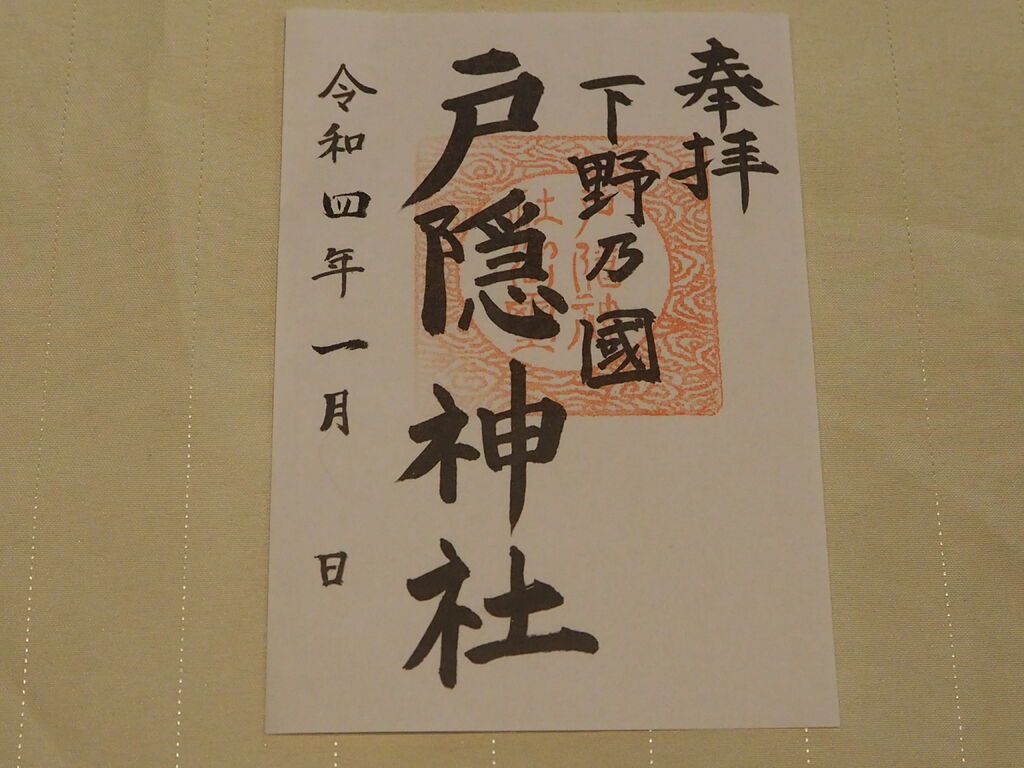 奉拝
下野乃國
戸隠神社
令和四年一月　日